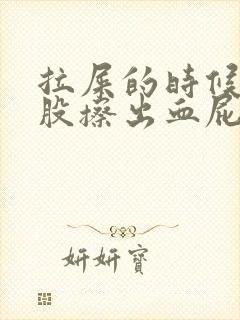 拉屎的时候
股擦出血屁
妍妍寶